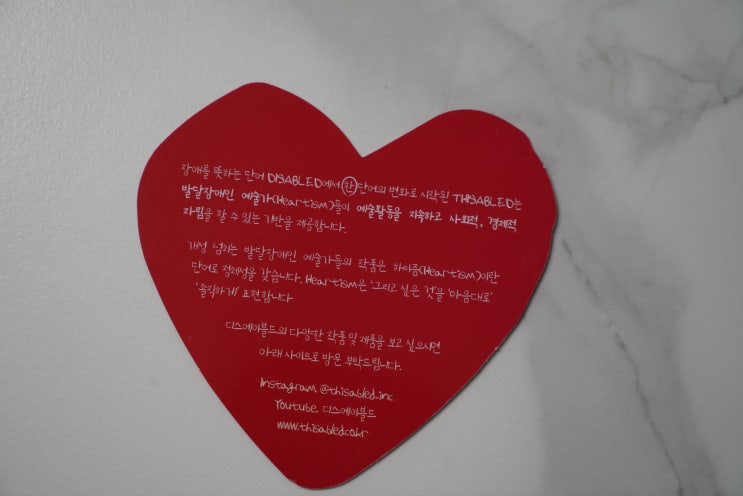 장애를 뜻하는 단어 DISABLED에서 한 단어의 변화로 시작된 THISABLED는
발달장애인 예술가(Heartism)들이 예술활동을 지속하고 사회적, 경제적
자립을 할 수 있는 기반을 제공합니다.
개성 넘치는 발달장애인 예술가들의 작품은 하티즘(Heartism)이란
단어로 정체성을 갖습니다. Heartism은 '그리고 싶은 것'을 '마음대로'
'솔직하게' 표현합니다
디스에이블드의 다양한 작품 및 제품을 보고 싶으시면
아래 사이트로 방문 부탁드립니다.
Instagram @thisabled.inc
Youtube. 디스에이블드
www.thisabled.co.kr